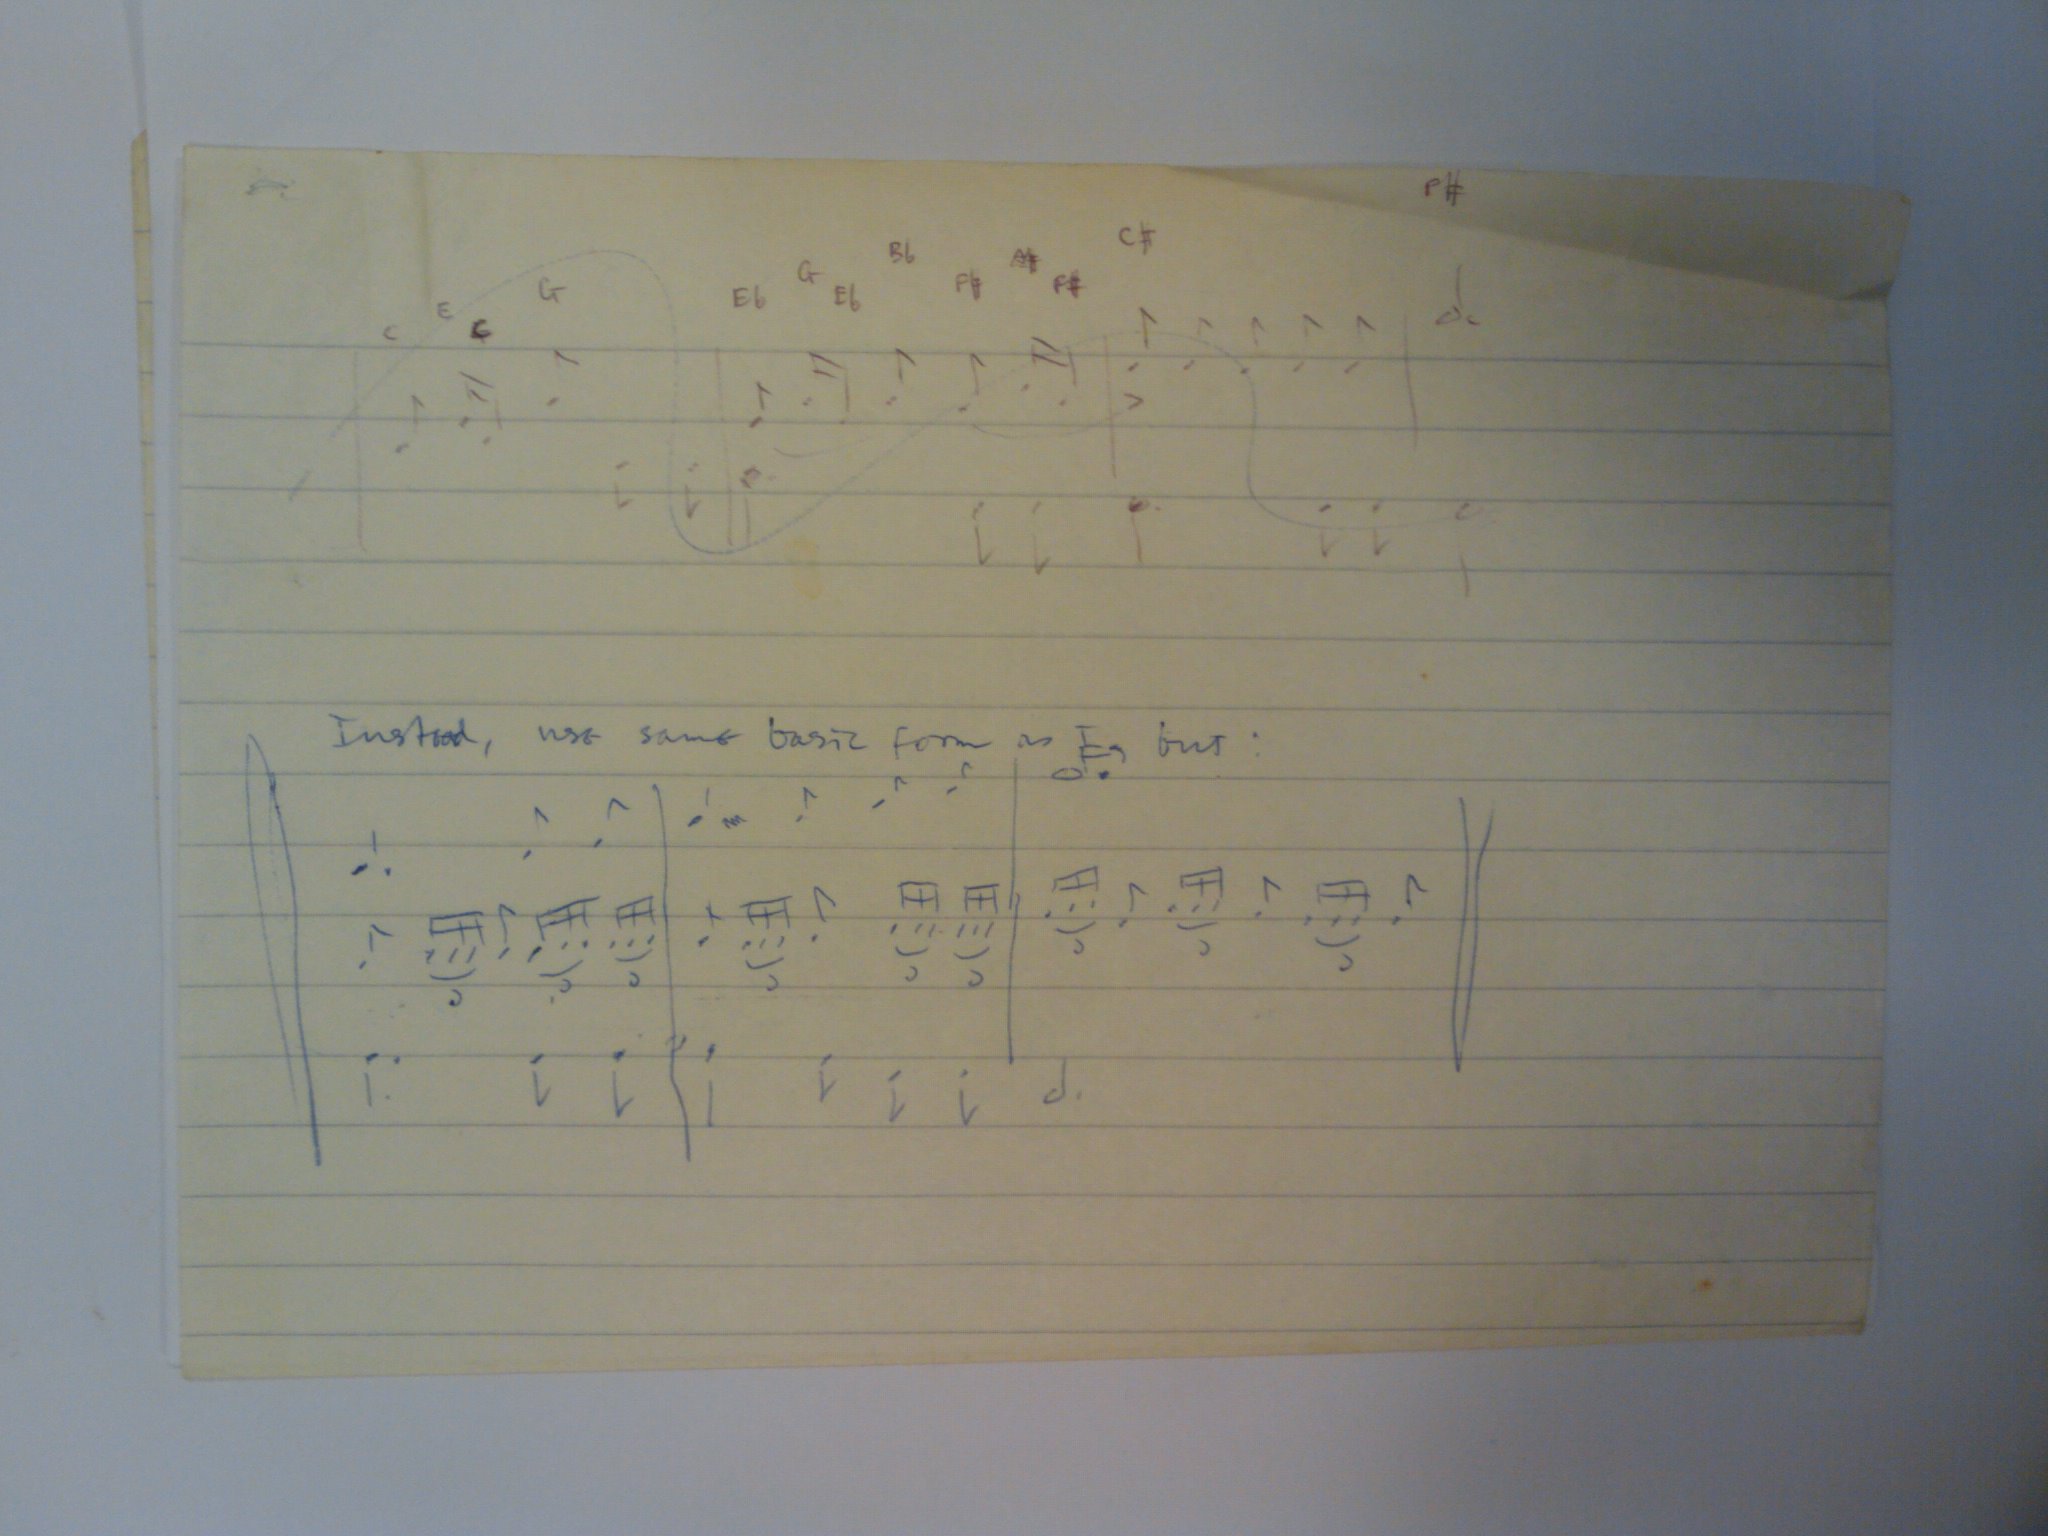 F#
C E C G Eb G Eb Bb F# A# F# C#
Instead, use same basic form as but: